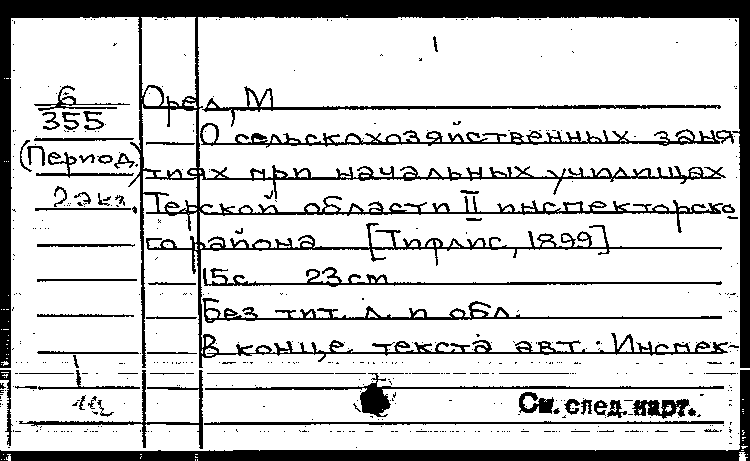 1
6
355
(Период.)
2 экз.
Орел, М
О сельскохозяйственных заня
тиях при начальных училищах
Терской области II инспекторско
го района [Тифлис, 1899]
15с. 23 cm
Без тит. л. и обл.
В конце текста авт.: Инспек-
См. след. карт.